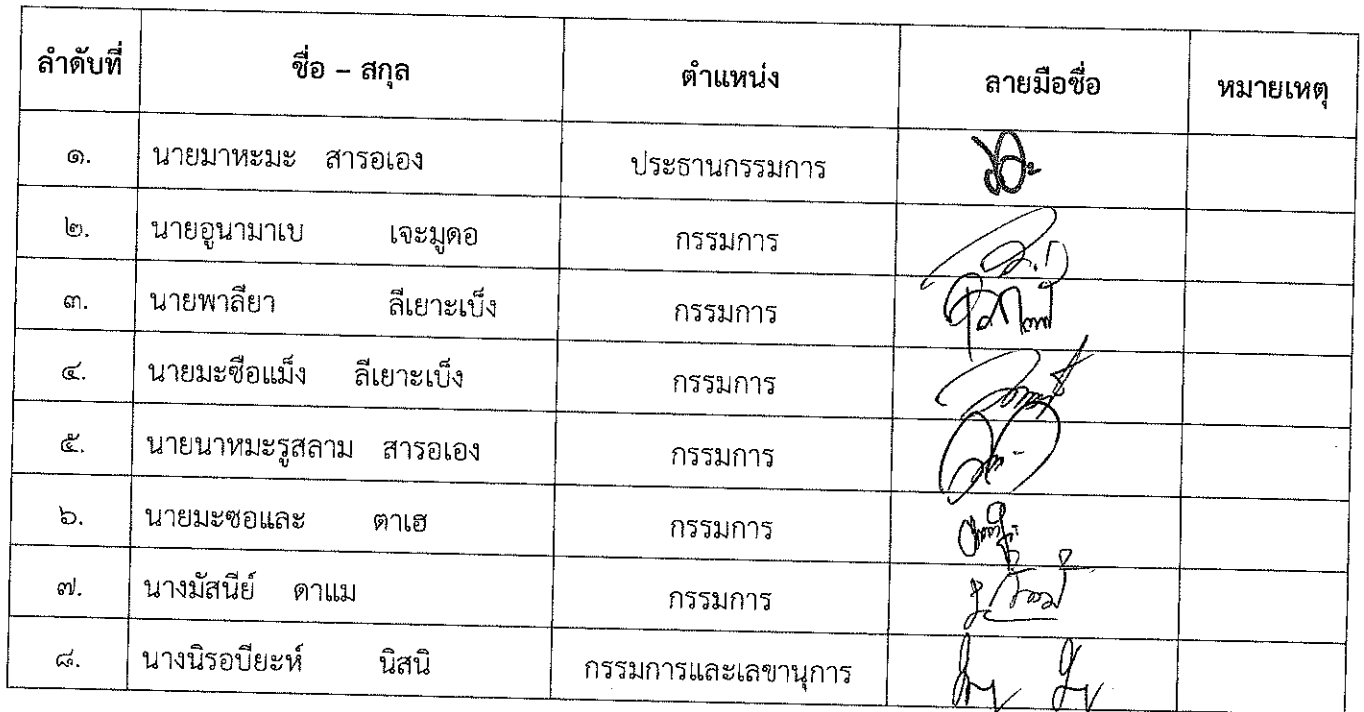 ลำดับที่ ชื่อ – สกุล ตำแหน่ง ลายมือชื่อ หมายเหตุ
๑. นายมาหะมะ สารอเอง ประธานกรรมการ
๒. นายอูนามาเบ เจะมูดอ กรรมการ
๓. นายพาลียา ลีเยาะเบ็ง กรรมการ
๔. นายมะซือแม็ง ลีเยาะเบ็ง กรรมการ
๕. นายนาหมะรูสลาม สารอเอง กรรมการ
๖. นายมะซอและ ตาเฮ กรรมการ
๗. นางมัสนีย์ ดาแม กรรมการ
๘. นางนิรอบียะห์ นิสนิ กรรมการและเลขานุการ